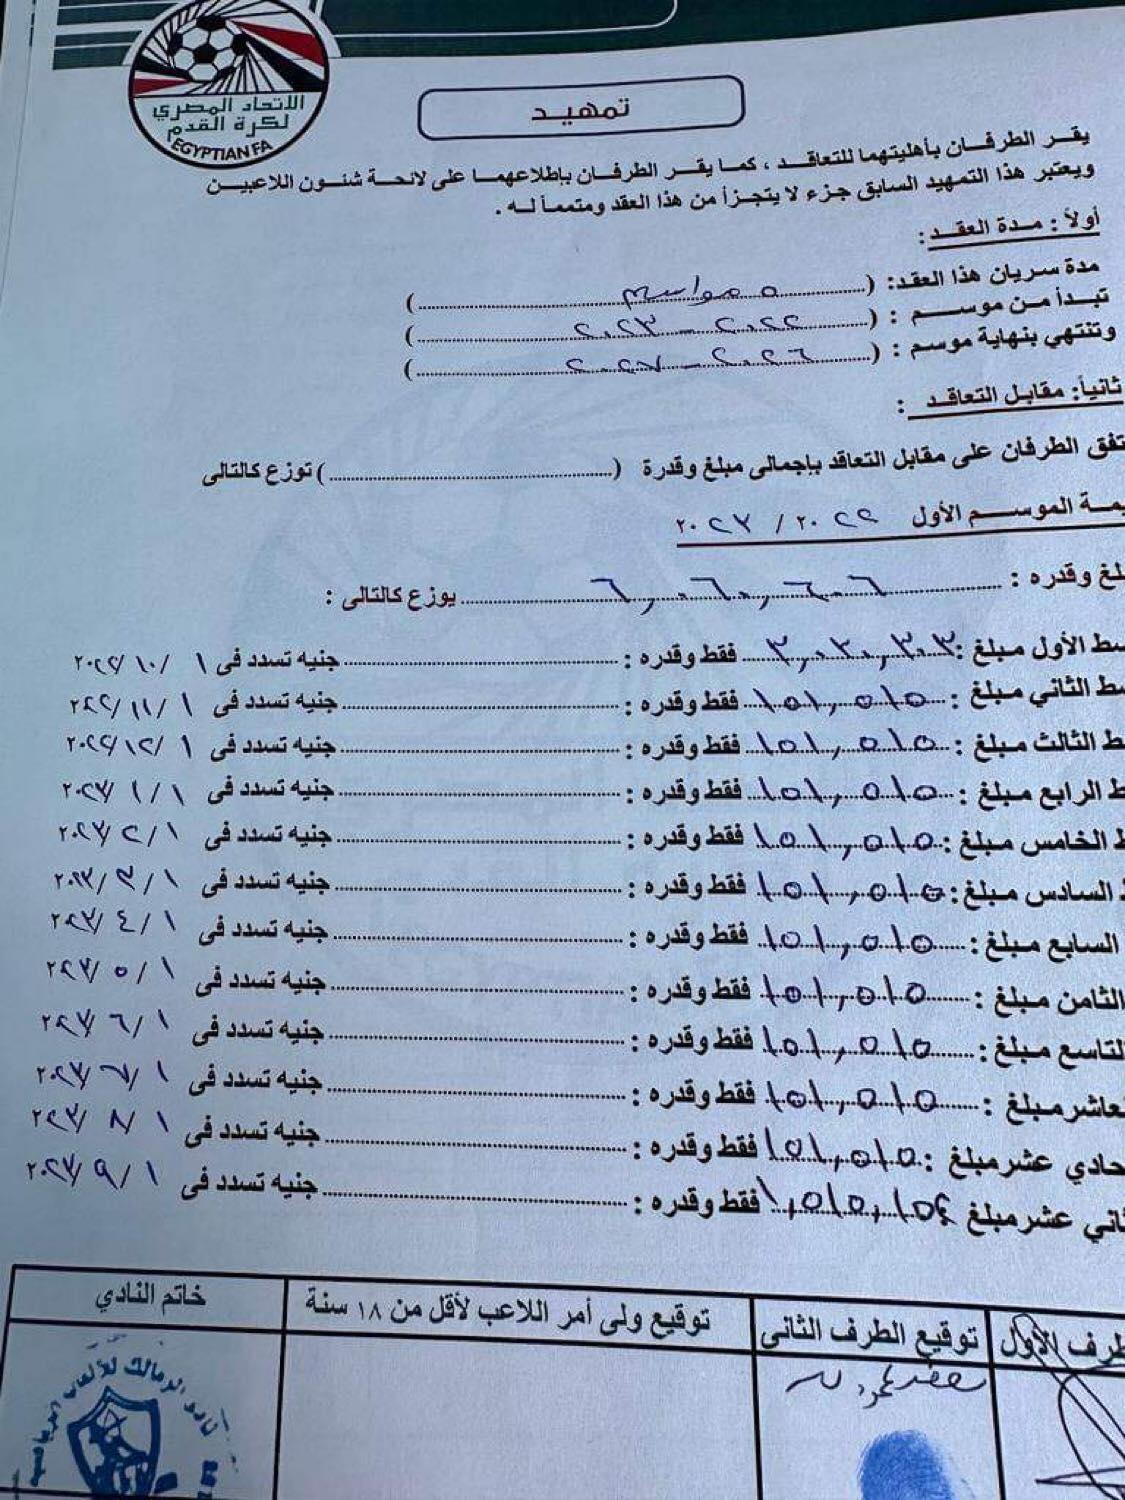 الاتحاد المصري
لكرة القدم
EGYPTIAN FA
تمهيد
يقر الطرفان بأهليتهما للتعاقد ، كما يقر الطرفان بإطلاعهما على لائحة شئون اللاعبين
ويعتبر هذا التمهيد السابق جزء لا يتجزأ من هذا العقد ومتمماً له .
أولاً : مدة العقد :
مدة سريان هذا العقد: ( ٥ مواسم )
تبدأ من موسم : ( ٢٠٢٢ - ٢٠٢٣ )
وتنتهي بنهاية موسم : ( ٢٠٢٦ - ٢٠٢٧ )
ثانياً: مقابل التعاقد :
تفق الطرفان على مقابل التعاقد بإجمالى مبلغ وقدرة ( ) توزع كالتالى
يمة الموسم الأول ٢٠٢٢ / ٢٠٢٣
لغ وقدره : ٦,٠٦٠,٦٠٦ يوزع كالتالى :
سط الأول مبلغ : ٣,٠٣٠,٣٠٣ فقط وقدره : جنيه تسدد فى ١ / ١٠ / ٢٠٢٢
سط الثاني مبلغ : ١٥١,٥١٥ فقط وقدره : جنيه تسدد فى ١ / ١١ / ٢٠٢٢
ط الثالث مبلغ : ١٥١,٥١٥ فقط وقدره : جنيه تسدد فى ١ / ١٢ / ٢٠٢٢
ط الرابع مبلغ : ١٥١,٥١٥ فقط وقدره : جنيه تسدد فى ١ / ١ / ٢٠٢٣
ط الخامس مبلغ : ١٥١,٥١٥ فقط وقدره : جنيه تسدد فى ١ / ٢ / ٢٠٢٣
السادس مبلغ : ١٥١,٥١٥ فقط وقدره : جنيه تسدد فى ١ / ٣ / ٢٠٢٣
السابع مبلغ : ١٥١,٥١٥ فقط وقدره : جنيه تسدد فى ١ / ٤ / ٢٠٢٣
الثامن مبلغ : ١٥١,٥١٥ فقط وقدره : جنيه تسدد فى ١ / ٥ / ٢٠٢٣
لتاسع مبلغ : ١٥١,٥١٥ فقط وقدره : جنيه تسدد فى ١ / ٦ / ٢٠٢٣
عاشر مبلغ : ١٥١,٥١٥ فقط وقدره : جنيه تسدد فى ١ / ٧ / ٢٠٢٣
حادي عشر مبلغ : ١٥١,٥١٥ فقط وقدره : جنيه تسدد فى ١ / ٨ / ٢٠٢٣
ثاني عشر مبلغ ١,٥١٥,١٥٤ فقط وقدره : جنيه تسدد فى ١ / ٩ / ٢٠٢٣
طرف الأول توقيع الطرف الثانى توقيع ولى أمر اللاعب لأقل من ١٨ سنة خاتم النادي
نادى الزمالك للألعاب الرياضية